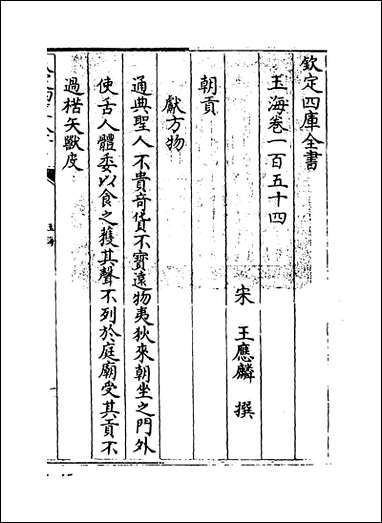 欽定四庫全書
玉海卷一百五十四
宋 王應麟 撰
朝貢
獻方物
通典聖人不貴奇貨不寶遠物夷狄來朝坐之門外
使舌人體委以食之獲其聲不列於庭廟受其貢不
過楛矢獸皮
玉海